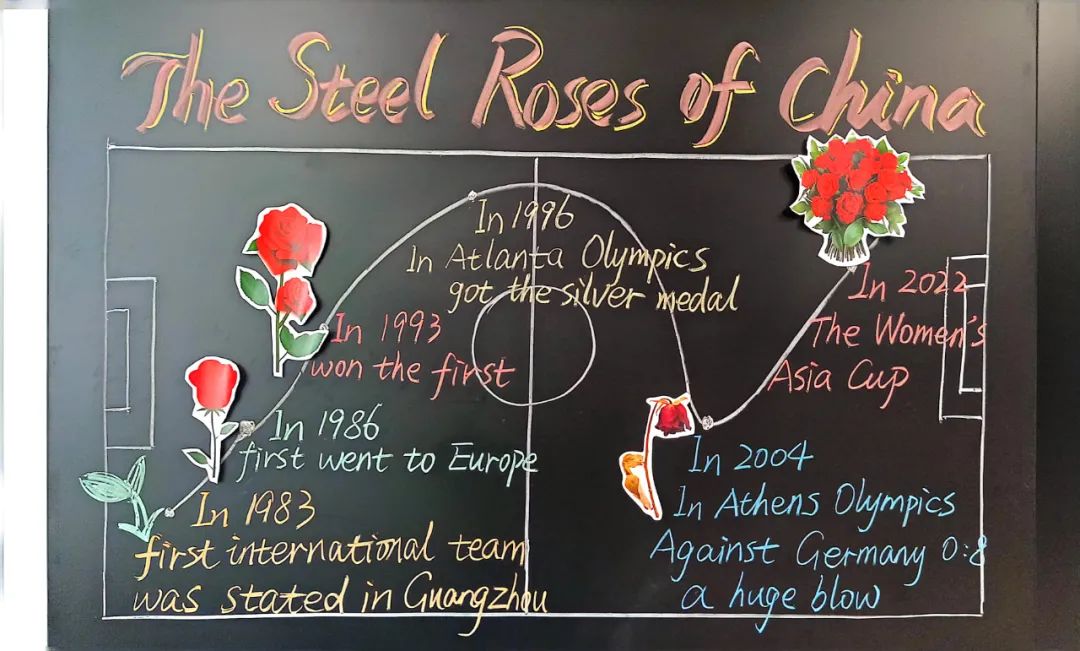 The Steel Roses of China
In 1983
first international team
was stated in Guangzhou
In 1986
first went to Europe
In 1993
won the first
In 1996
In Atlanta Olympics
got the silver medal
In 2004
In Athens Olympics
Against Germany 0:8
a huge blow
In 2022
The Women's
Asia Cup